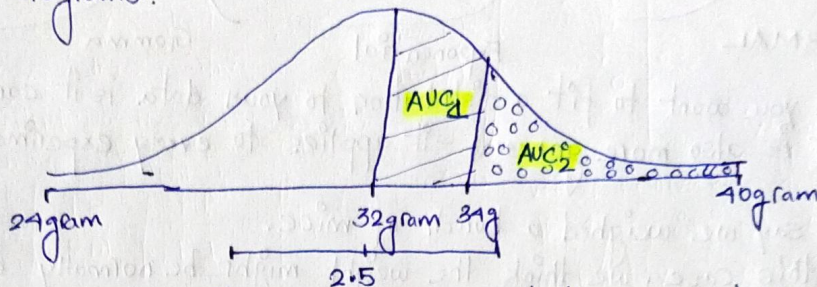 grams.
AUC1
AUC2
24gram 32gram 34g 40gram
2.5